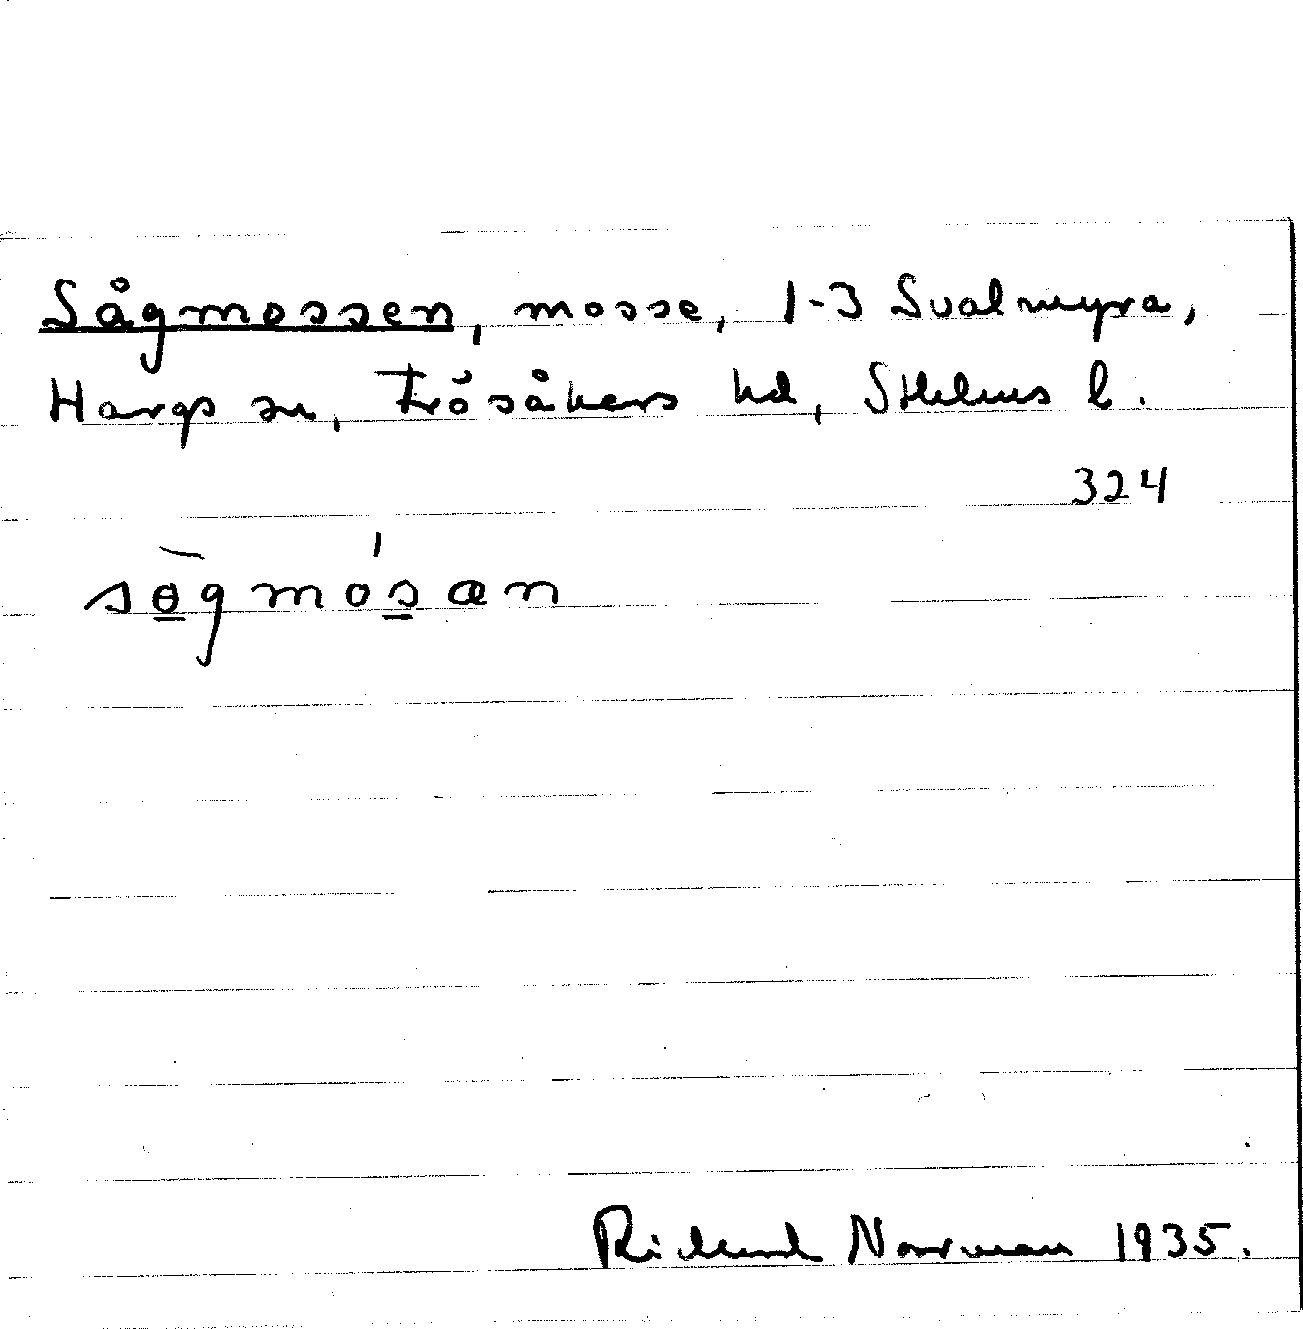 Sågmossen, mosse, 1-3 Svalmyra,
Hargs sn, Frösåkers hd, Sthlms l.
324
sɵgmosæn
Richard Norrman 1935.